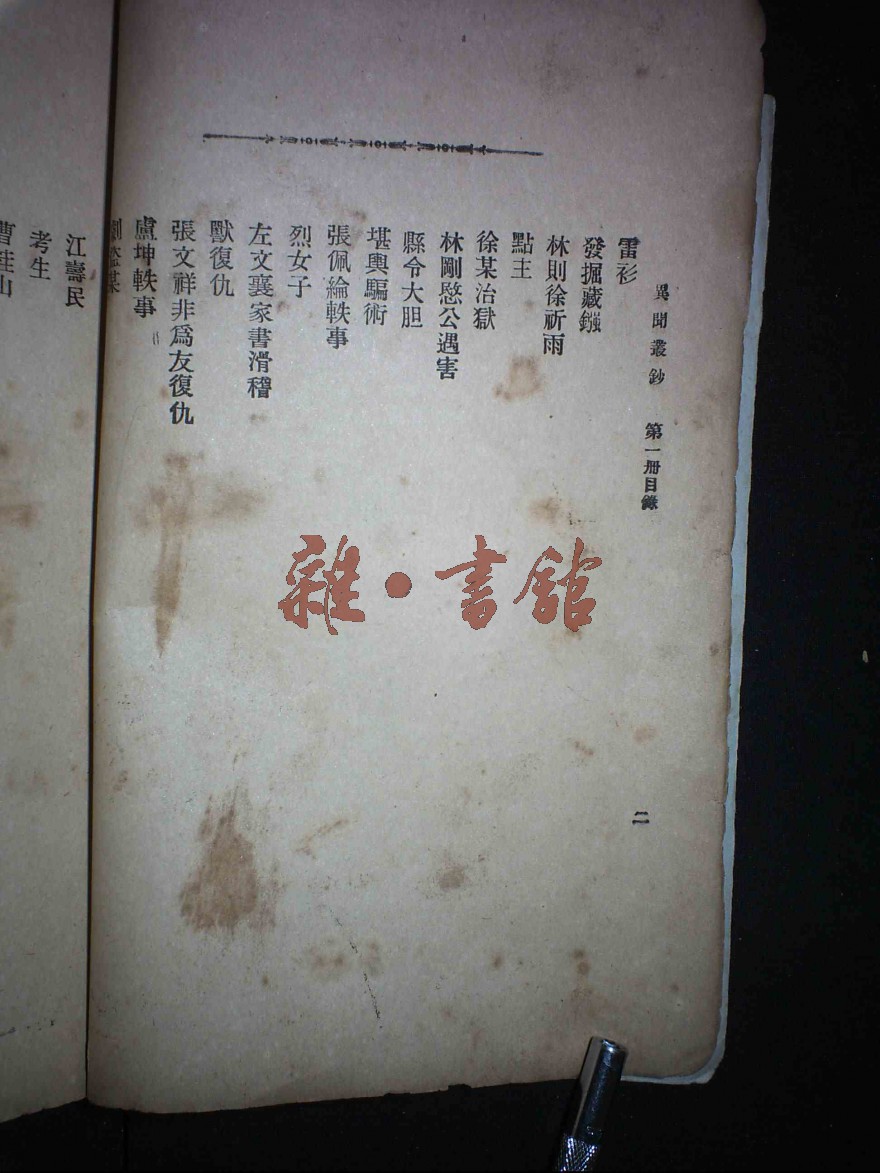 異聞叢鈔 第一册目錄
二
雷衫
發掘藏鏹
林則徐祈雨
點主
徐某治獄
林剛愍公遇害
縣令大胆
堪輿騙術
張佩綸軼事
烈女子
左文襄家書滑稽
獸復仇
張文祥非爲友復仇
盧坤軼事
江壽民
考生
雜·書館